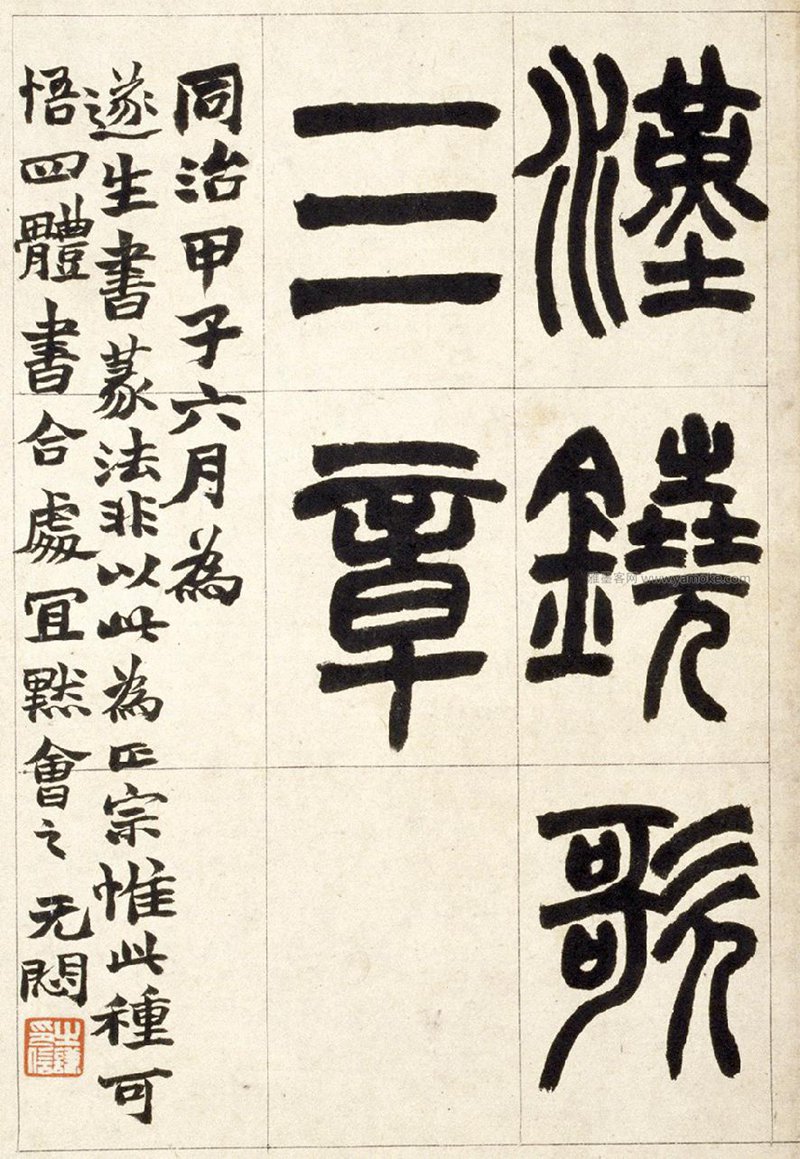 漢鐃歌
三章
同治甲子六月為
遂生書篆法非以此為正宗惟此種可
悟四體書合處宜默會之 无悶
之謙印信
雅墨客网 www.yamoke.com